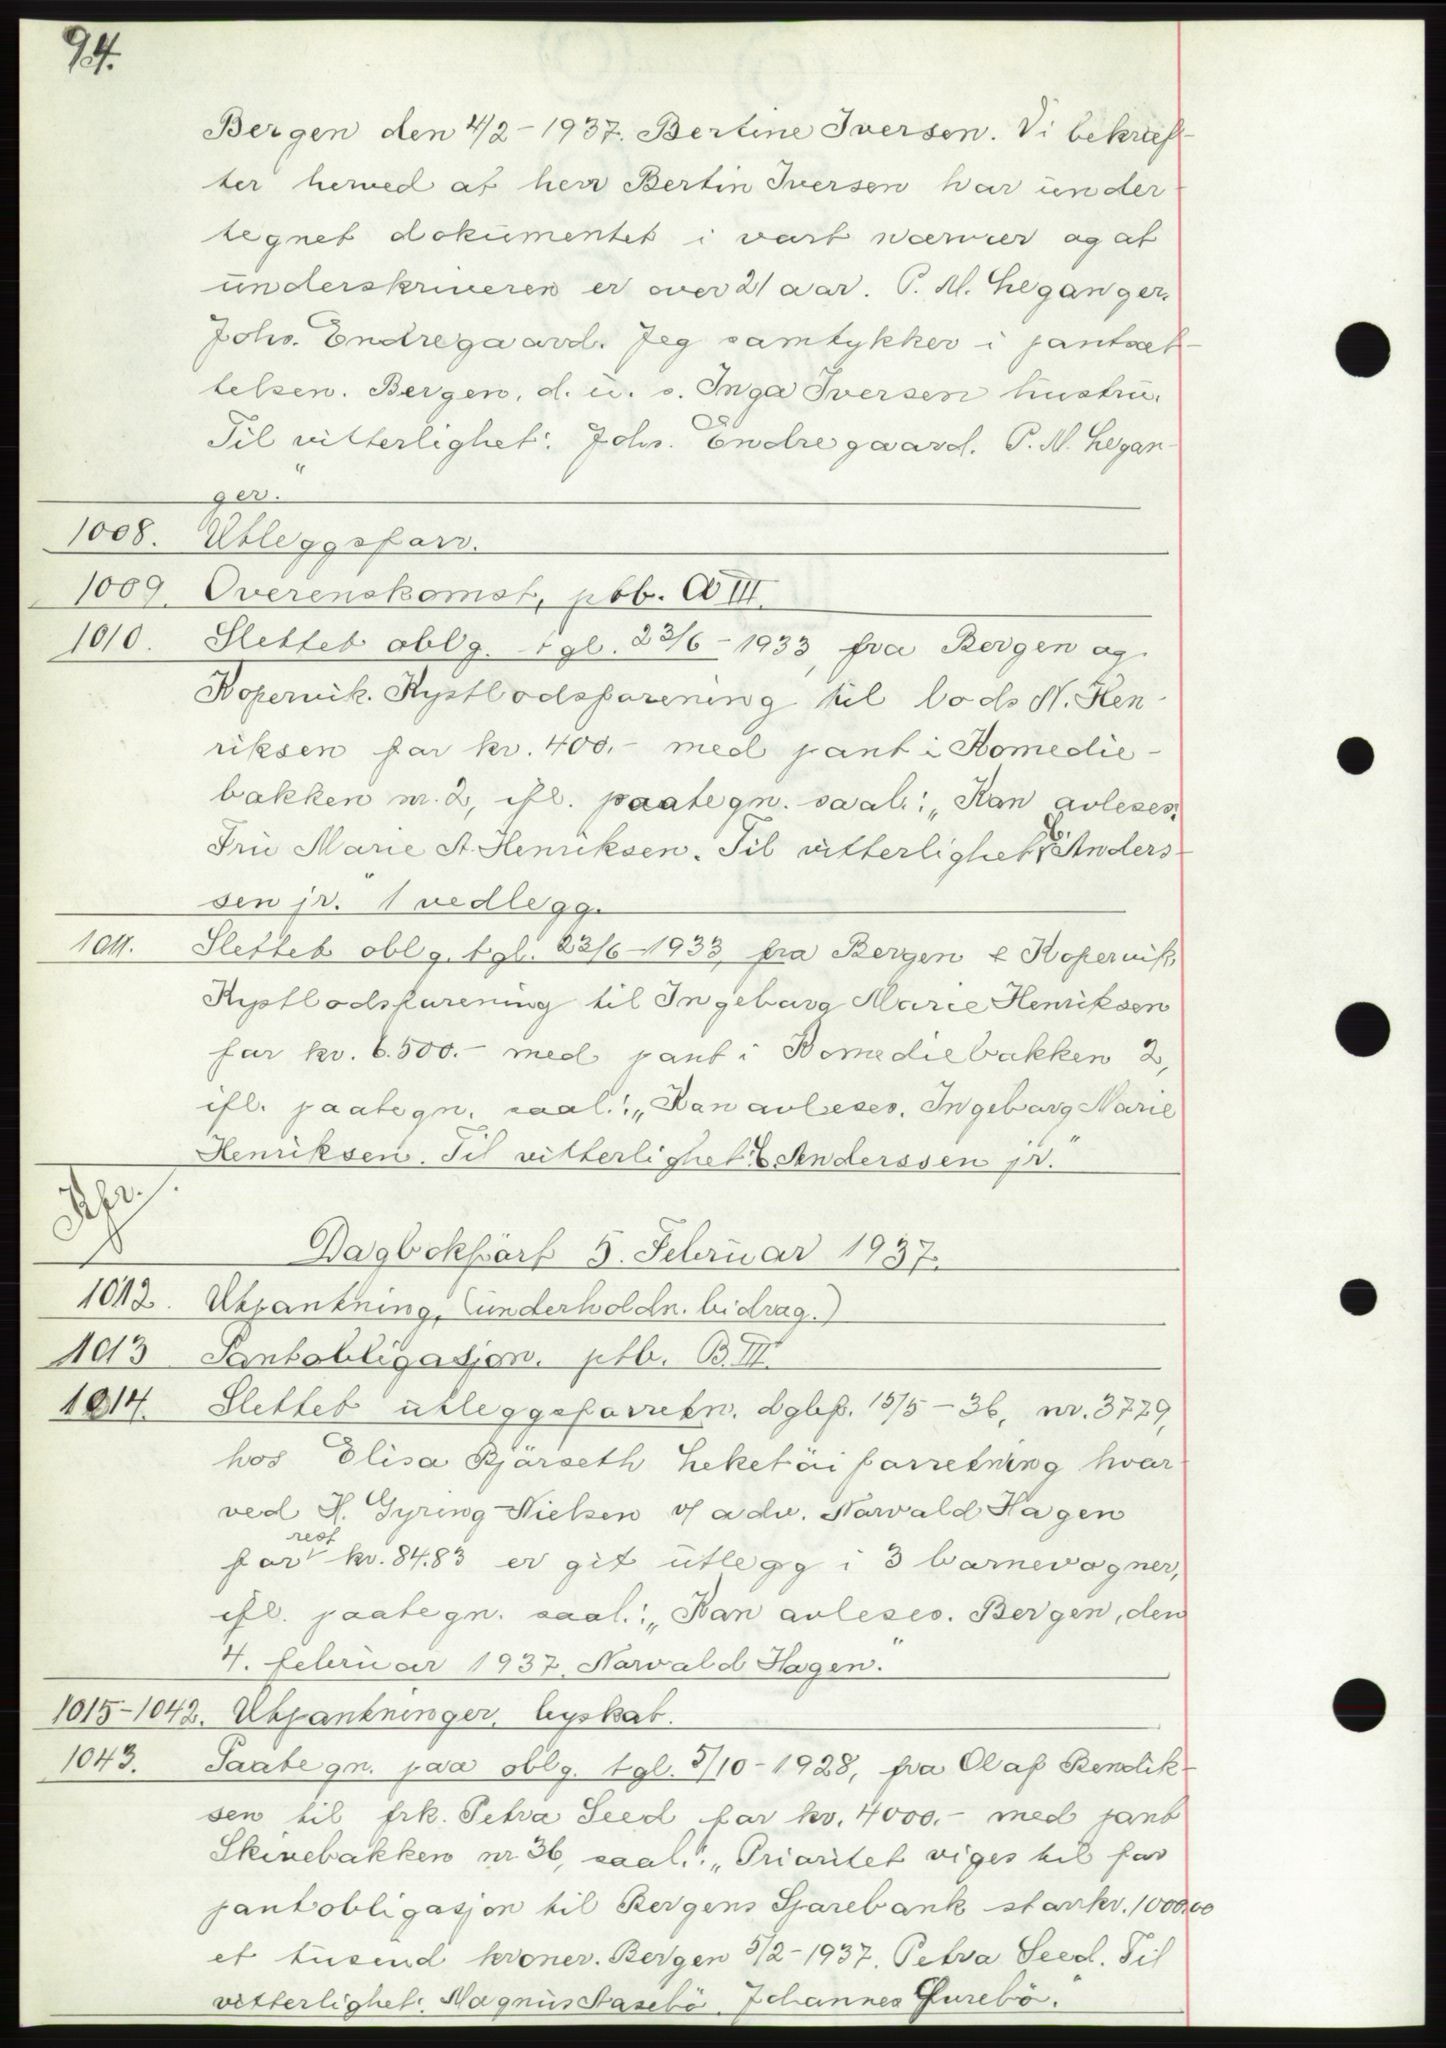 94.
Bergen den 4/2 - 1937. Bertine Iversen. Vi bekræf-
ter herved at herr Bertin Iversen har under-
tegnet dokumentet i vart nærvær og at
underskriveren er over 21 aar. P. M. Leganger.
Johs. Endregaard. Jeg samtykker i pantsæt-
telsen. Bergen, d. u. s. Inga Iversen hustru.
Til vitterlighet: Johs. Endregaard. P. M. Legan-
ger."
1008. Utleggsforr.
1009. Overenskomst, ptb. A III.
1010. Slettet oblg. tgl. 23/6 - 1933, fra Bergen og
Kopervik Kystlodsforening til lods N. Hen-
riksen for kr. 400.- med pant i Komedie-
bakken nr. 2, ifl. paategn. saal.: „Kan avleses.
Fru Marie A. Henriksen. Til vitterlighet: E. Anders-
sen jr." 1 vedlegg.
1011. Slettet oblg. tgl. 23/6 - 1933, fra Bergen & Kopervik
Kystlodsforening til Ingeborg Marie Henriksen
for kr. 6.500.- med pant i Komediebakken 2,
ifl. paategn. saal.: „Kan avleses. Ingeborg Marie
Henriksen. Til vitterlighet: E. Anderssen jr."
Dagbokfört 5. Februar 1937.
1012. Utpantning, (underholdn. bidrag.)
1013 Pantobligasjon. ptb. B. III.
1014. Slettet utleggsforretn. dgbf. 15/5 - 36, nr. 3779,
hos Elisa Bjärseth Leketöiforretning hvor-
ved H. Gyring-Nielsen v/ adv. Norvald Hagen
for rest kr. 84.83 er git utlegg i 3 barnevogner,
ifl. paategn. saal.: „Kan avleses. Bergen, den
4. februar 1937. Norvald Hagen."
1015-1042. Utpantninger, byskat.
1043. Paategn. paa oblg. tgl. 5/10 - 1928, fra Olaf Bendik-
sen til frk. Petra Seed for kr. 4000.- med pant
Skivebakken nr 36, saal.: „Prioritet viges til for
pantobligasjon til Bergens Sparebank stor kr. 1000.00
et tusend kroner. Bergen 5/2 - 1937. Petra Seed. Til
vitterlighet: Magnus Aasebö. Johannes Furebö."